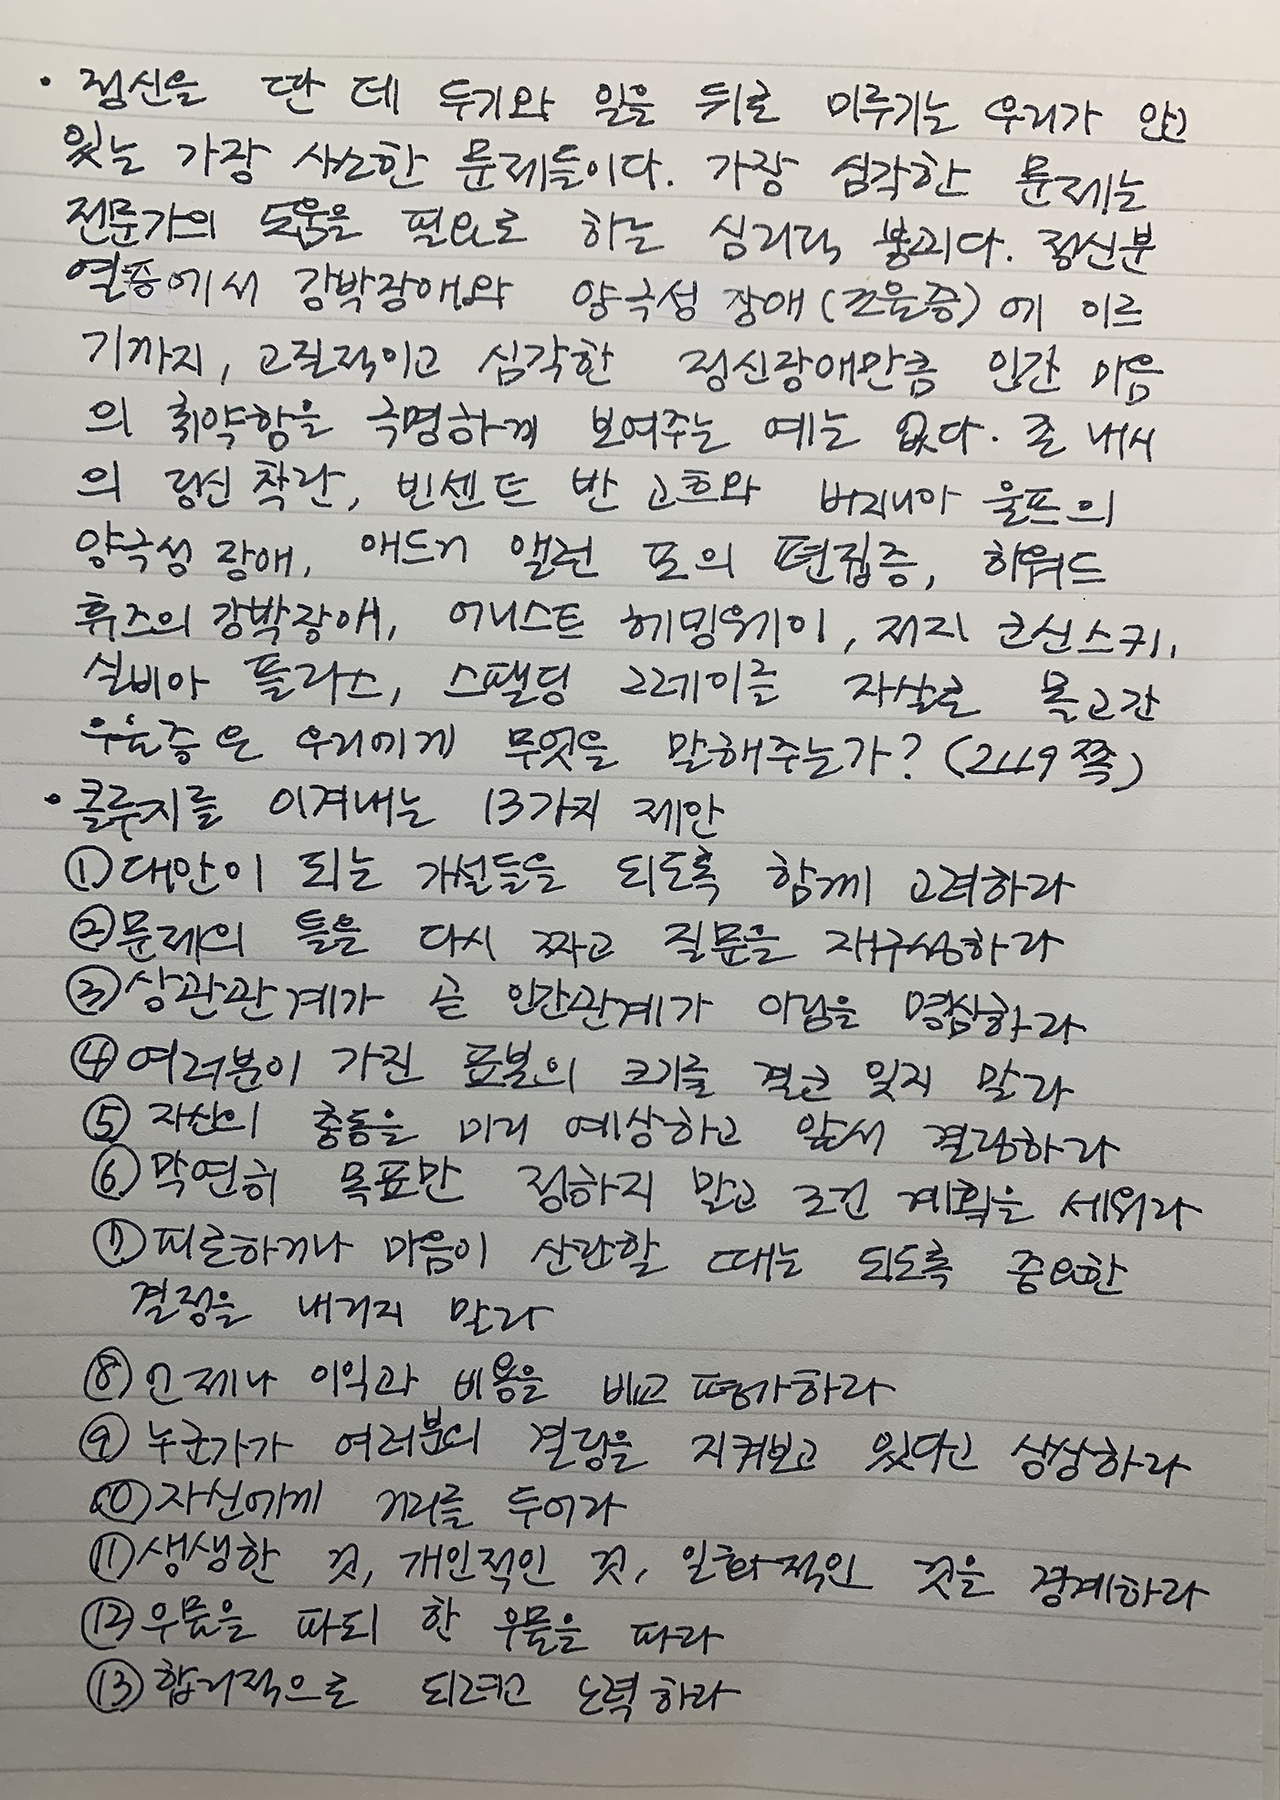 · 정신을 딴 데 두기와 일을 뒤로 미루기는 우리가 안고
있는 가장 사소한 문제들이다. 가장 심각한 문제는
전문가의 도움을 필요로 하는 심리적 붕괴다. 정신분
열증에서 강박장애와 양극성 장애(조울증)에 이르
기까지, 고질적이고 심각한 정신장애만큼 인간 마음
의 취약함을 극명하게 보여주는 예는 없다. 존 내시
의 정신 착란, 빈센트 반 고흐와 버지니아 울프의
양극성 장애, 애드거 앨런 포의 편집증, 하워드
휴즈의 강박장애, 어니스트 헤밍웨이, 저지 코신스키,
실비아 플라스, 스팰딩 그레이를 자살로 몰고간
우울증은 우리에게 무엇을 말해주는가? (249쪽)
· 클루지를 이겨내는 13가지 제안
① 대안이 되는 가설들을 되도록 함께 고려하라
② 문제의 틀을 다시 짜고 질문을 재구성하라
③ 상관관계가 곧 인간관계가 아님을 명심하라
④ 여러분이 가진 표본의 크기를 결코 잊지 말라
⑤ 자신의 충동을 미리 예상하고 앞서 결정하라
⑥ 막연히 목표만 정하지 말고 조건 계획을 세워라
⑦ 피로하거나 마음이 산란할 때는 되도록 중요한
결정을 내리지 말라
⑧ 언제나 이익과 비용을 비교 평가하라
⑨ 누군가가 여러분의 결정을 지켜보고 있다고 상상하라
⑩ 자신에게 거리를 두어라
⑪ 생생한 것, 개인적인 것, 일화적인 것을 경계하라
⑫ 우물을 파되 한 우물을 파라
⑬ 합리적으로 되려고 노력하라